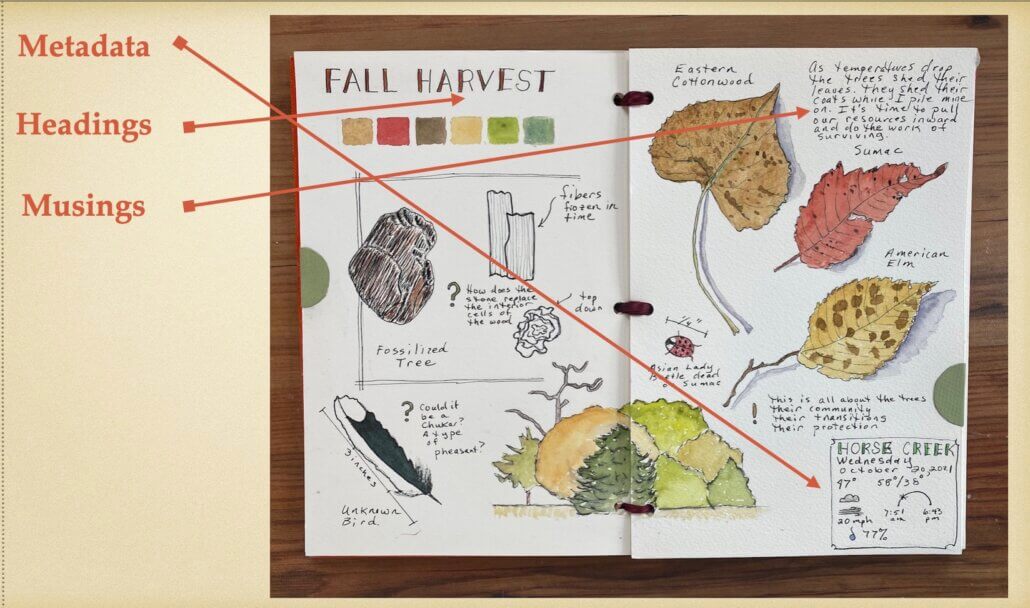 Metadata
Headings
Musings
FALL HARVEST
fibers
frozen in
time
? How does the
stone replace
the interior
cells of
the wood
top
down
Fossilized
Tree
? Could it
be a
Chukar?
A type
of
pheasant?
3 inches
Unknown
Bird
Eastern
Cottonwood
As temperatures drop
the trees shed their
leaves. They shed their
coats while I pile mine
on. It's time to pull
our resources inward
and do the work of
surviving.
Sumac
American
Elm
1/4"
Asian Lady
Beetle dead
on Sumac
! This is all about the trees
their community
their transitions
their protection
HORSE CREEK
Wednesday
October 20, 2021
47° 58°/38°
7:51 6:43
am pm
20 mph
77%